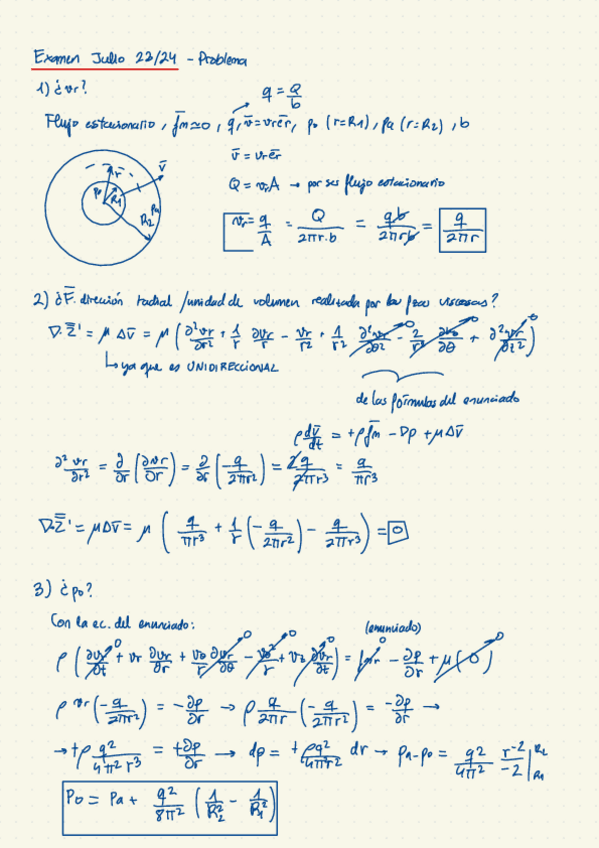 Examen Julio 22/24 - Problema
1) ¿vr?
q = Q/b
Flujo estacionario, f̄m≃0, q, v̄=vrēr, po (r=R1), pa (r=R2), b
v̄ = vrēr
Q = vrA → por ser flujo estacionario
po r R1 v̄ R2 pa
vr = q/A = Q/2πr·b = qb/2πrb = q/2πr
2) ¿F̄ dirección radial /unidad de volumen realizada por las fzas viscosas?
∇·Z̿' = μ Δv̄ = μ (∂²vr/∂r² + 1/r ∂vr/r − vr/r² + 1/r² ∂²vr/∂θ² − 2/r² ∂vθ/∂θ + ∂²vr/∂z²) 0 0 0
ya que es UNIDIRECCIONAL
de las fórmulas del enunciado
ρ dv̄/dt = +ρf̄m − ∇p + μΔv̄
∂²vr/∂r² = ∂/∂r (∂vr/∂r) = ∂/∂r (−q/2πr²) = 2q/2πr³ = q/πr³
∇·Z̿' = μΔv̄ = μ (q/πr³ + 1/r (−q/2πr²) − q/2πr³) = 0
3) ¿po?
Con la ec. del enunciado:
(enunciado)
ρ (∂vr/∂t + vr ∂vr/∂r + vθ/r ∂vr/∂θ − vθ²/r + vz ∂vr/∂t) = − ∂p/∂r + μ(0) 0 0 0 0 0 0
ρ vr (−q/2πr²) = −∂p/∂r → ρ q/2πr (−q/2πr²) = −∂p/∂r →
→ +ρ q²/4π²r³ = +∂p/∂r → dp = +ρq²/4πr² dr → pa−po = q²/4π² r⁻²/−2 |R2 R1
Po = Pa + q²/8π² (1/R2² − 1/R1²)